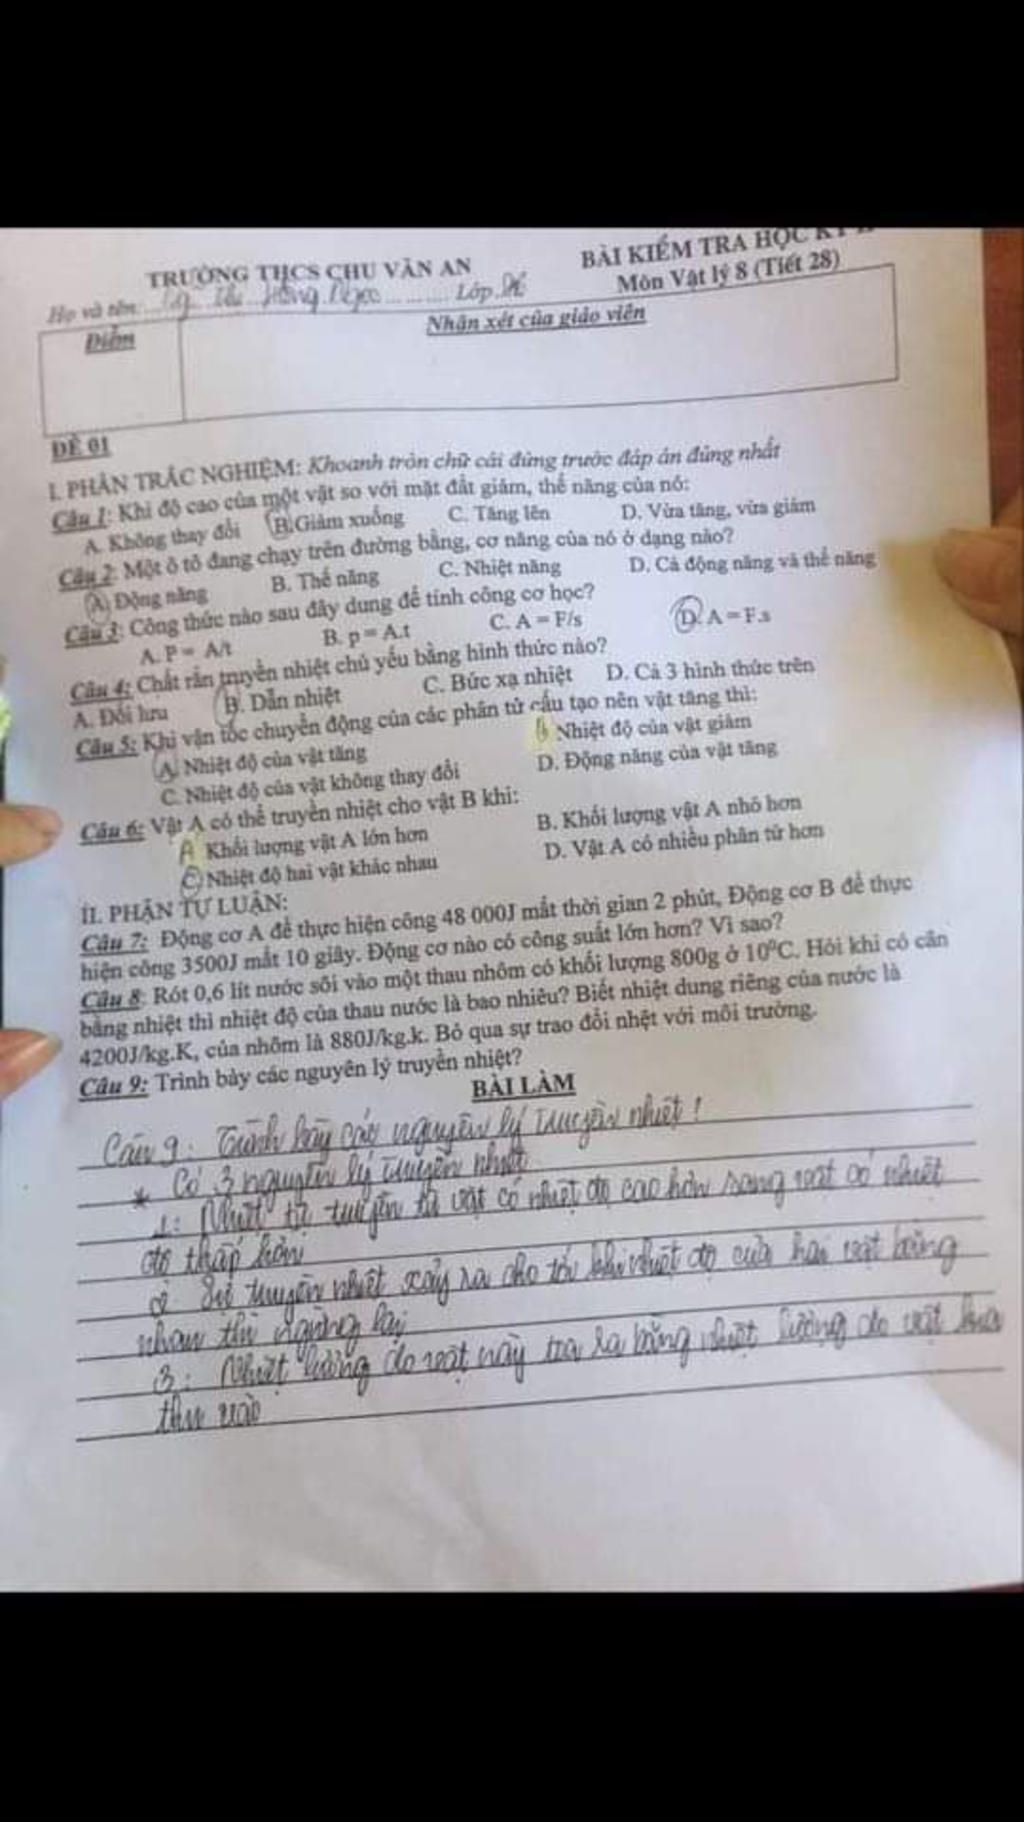 TRƯỜNG THCS CHU VĂN AN
BÀI KIỂM TRA HỌC KỲ
Họ và tên: Hồng Ngọc Lớp
Môn Vật lý 8 (Tiết 28)
Điểm
Nhận xét của giáo viên
ĐỀ 01
I. PHẦN TRẮC NGHIỆM: Khoanh tròn chữ cái đứng trước đáp án đúng nhất
Câu 1: Khi độ cao của một vật so với mặt đất giảm, thế năng của nó:
A. Không thay đổi B. Giảm xuống C. Tăng lên D. Vừa tăng, vừa giảm
Câu 2: Một ô tô đang chạy trên đường bằng, cơ năng của nó ở dạng nào?
A. Động năng B. Thế năng C. Nhiệt năng D. Cả động năng và thế năng
Câu 3: Công thức nào sau đây dung để tính công cơ học?
A. P = A/t B. p = A.t C. A = F/s D. A = F.s
Câu 4: Chất rắn truyền nhiệt chủ yếu bằng hình thức nào?
A. Đối lưu B. Dẫn nhiệt C. Bức xạ nhiệt D. Cả 3 hình thức trên
Câu 5: Khi vận tốc chuyển động của các phân tử cấu tạo nên vật tăng thì:
A. Nhiệt độ của vật tăng B Nhiệt độ của vật giảm
C. Nhiệt độ của vật không thay đổi D. Động năng của vật tăng
Câu 6: Vật A có thể truyền nhiệt cho vật B khi:
A Khối lượng vật A lớn hơn B. Khối lượng vật A nhỏ hơn
C. Nhiệt độ hai vật khác nhau D. Vật A có nhiều phân tử hơn
II. PHẦN TỰ LUẬN:
Câu 7: Động cơ A để thực hiện công 48 000J mất thời gian 2 phút, Động cơ B để thực
hiện công 3500J mất 10 giây. Động cơ nào có công suất lớn hơn? Vì sao?
Câu 8: Rót 0,6 lít nước sôi vào một thau nhôm có khối lượng 800g ở 10⁰C. Hỏi khi có cân
bằng nhiệt thì nhiệt độ của thau nước là bao nhiêu? Biết nhiệt dung riêng của nước là
4200J/kg.K, của nhôm là 880J/kg.k. Bỏ qua sự trao đổi nhệt với môi trường.
Câu 9: Trình bày các nguyên lý truyền nhiệt?
BÀI LÀM
Câu 9: Trình bày các nguyên lý truyền nhiệt!
* Có 3 nguyên lý truyền nhiệt
1: Nhiệt tự truyền từ vật có nhiệt độ cao hơn sang vật có nhiệt
độ thấp hơn
2 Sự truyền nhiệt xảy ra cho tới khi nhiệt độ của hai vật bằng
nhau thì ngừng lại
3: Nhiệt lượng do vật này tỏa ra bằng nhiệt lượng do vật kia
thu vào